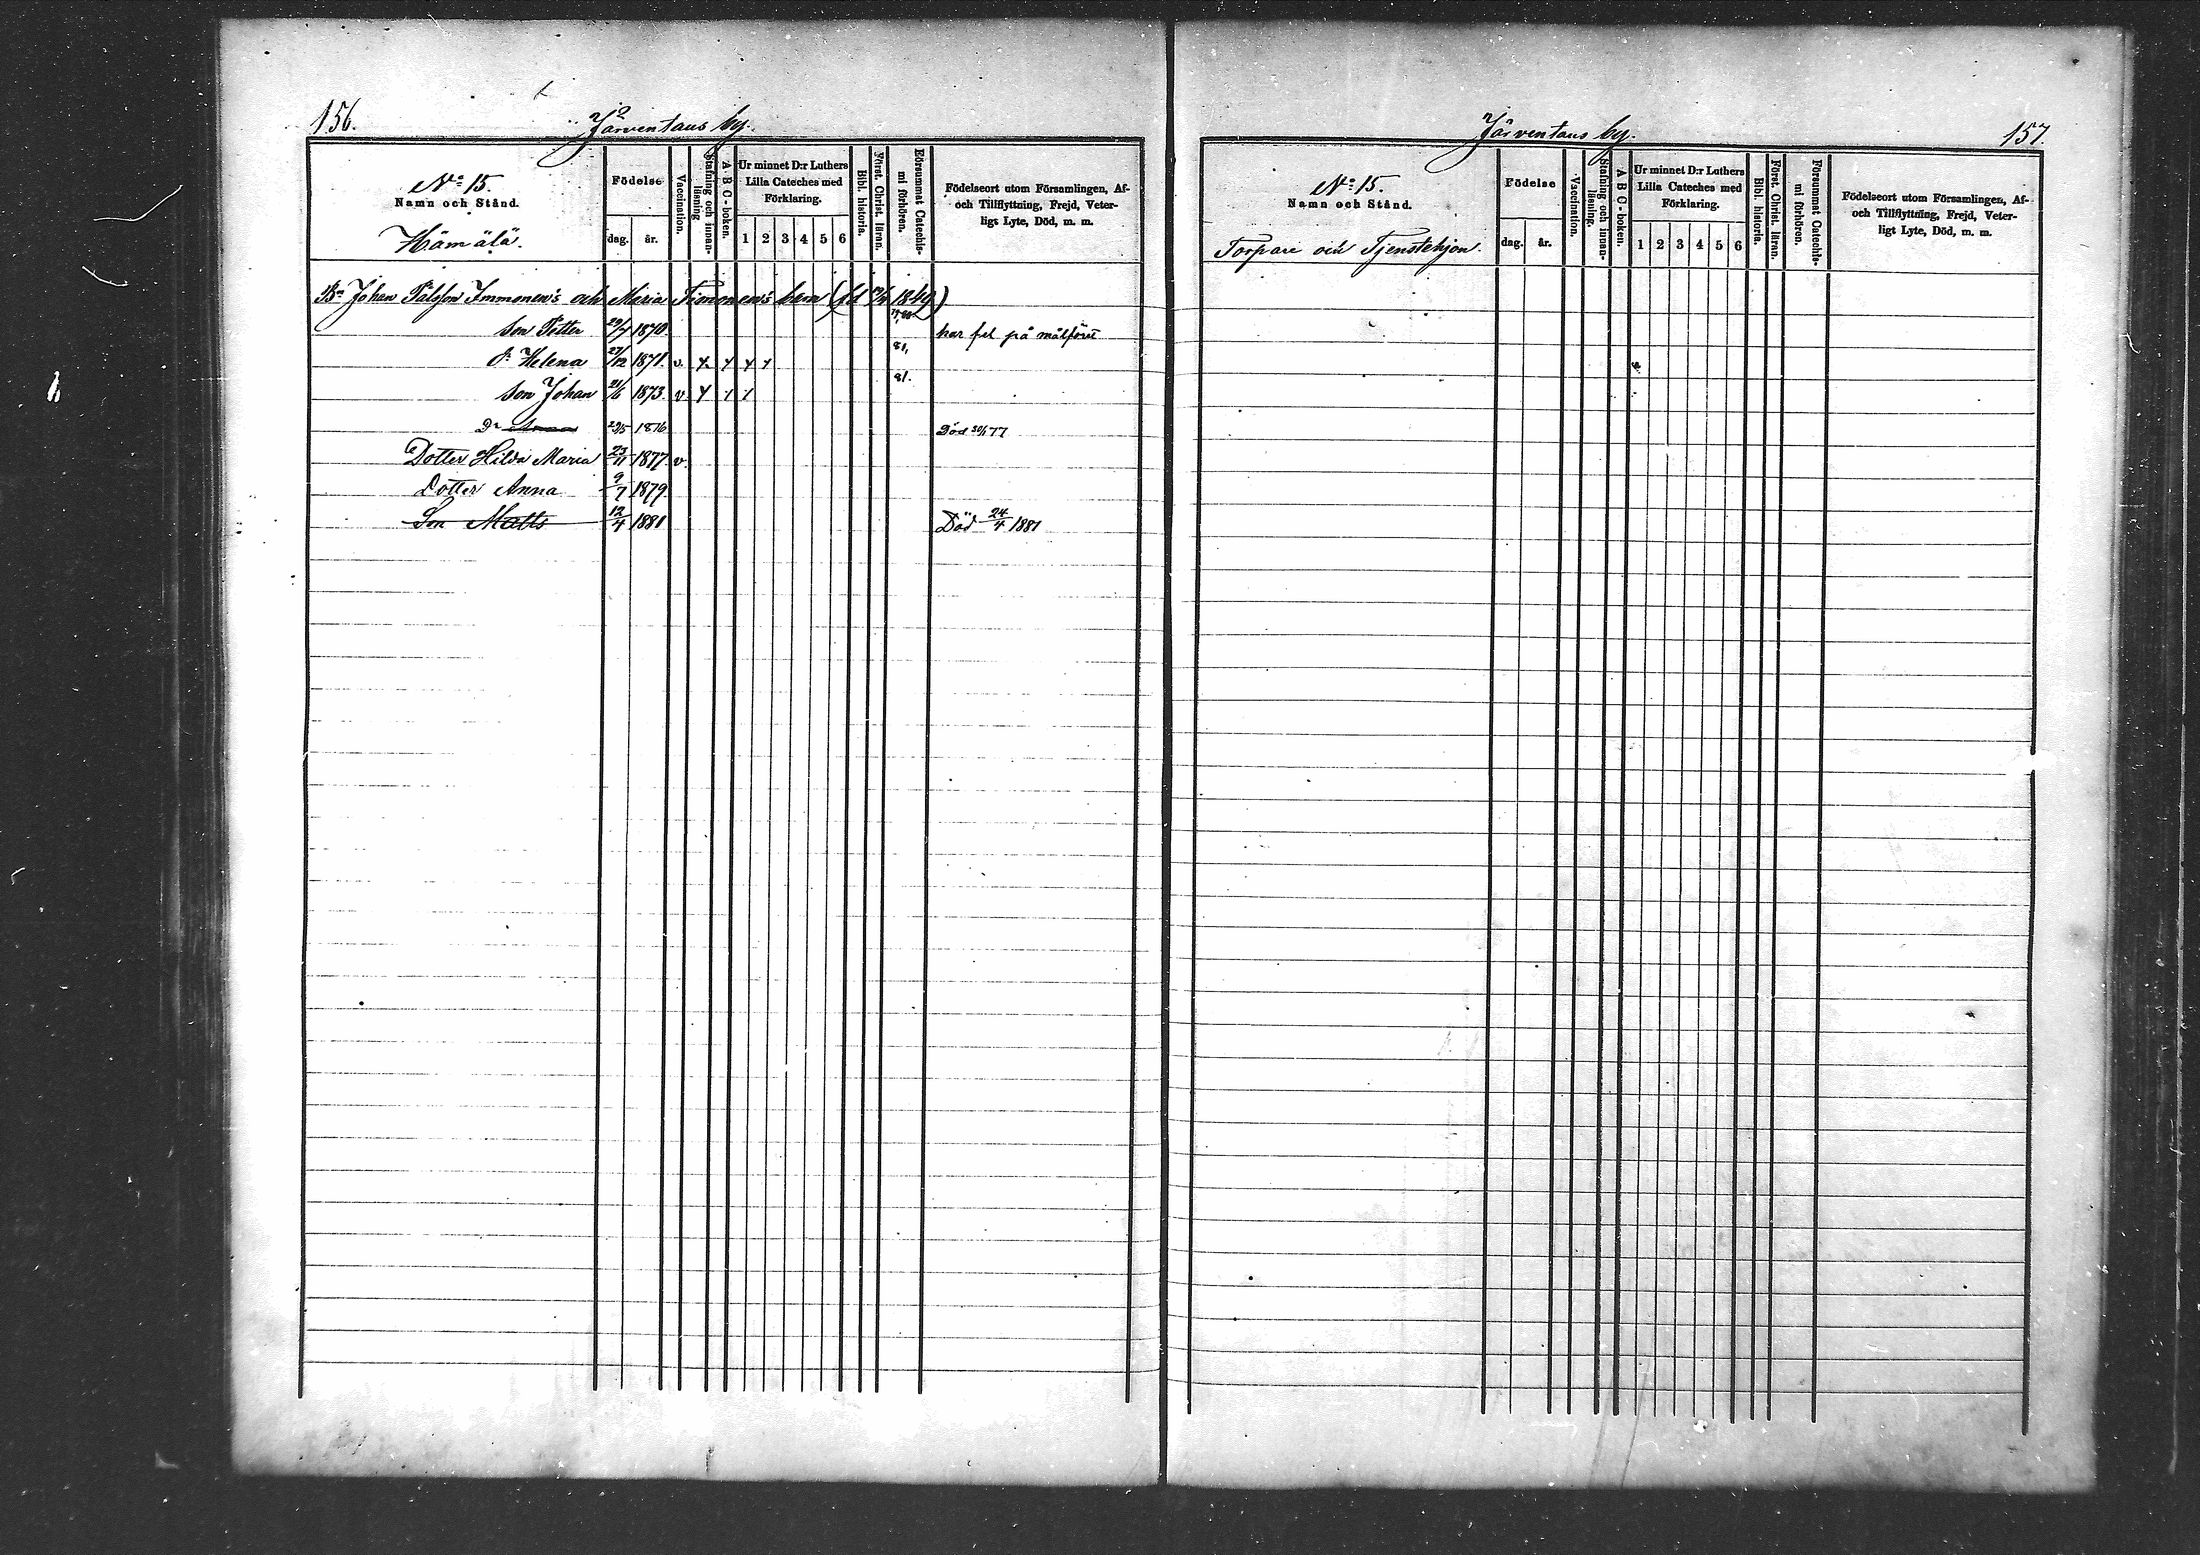 156.
Järventaus by.
No 15.
Namn och Stånd.
Hämälä.
Födelse
dag. år.
Vaccination.
Stafning och innan-
läsning
A B C-boken.
Ur minnet D:r Luthers
Lilla Cateches med
Förklaring.
1 2 3 4 5 6
Bibl. historia.
Först. Christ. läran.
Försummat Catechis-
mi förhören.
Födelseort utom Församlingen, Af-
och Tillflyttning, Frejd, Veter-
ligt Lyte, Död, m. m.
Bn Johan Pålsson Immonen's och Maria Timonen's barn (fd 1849)
Son Petter 29/7 1870. har fel på målföret
Dr Helena 27/12 1871. v. x x x x 81,
Son Johan 21/6 1873. v x x x 81.
Dr Anna 29/5 1876 Död 77
Dotter Hilda Maria 23/11 1877 v.
Dotter Anna 9/7 1879
Son Matts 12/4 1881 Död 24/4 1881
Järventaus by.
157.
No 15.
Namn och Stånd.
Torpare och Tjenstehjon.
Födelse
dag. år.
Vaccination.
Stafning och innan-
läsning.
A B C-boken.
Ur minnet D:r Luthers
Lilla Cateches med
Förklaring.
1 2 3 4 5 6
Bibl. historia.
Först. Christ. läran.
Försummat Catechis-
mi förhören.
Födelseort utom Församlingen, Af-
och Tillflyttning, Frejd, Veter-
ligt Lyte, Död, m. m.